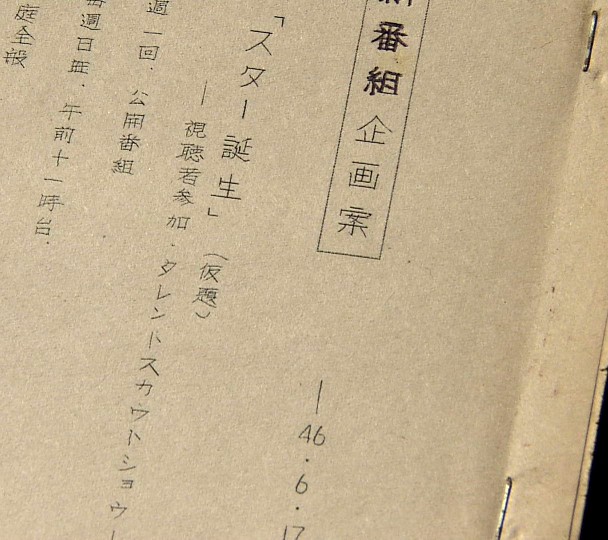 新番組企画案
—46・6・17
「スター誕生」(仮題)
—視聴者参加・タレントスカウトショウ—
週一回、公開番組
毎週日曜、午前十一時台、
庭全般